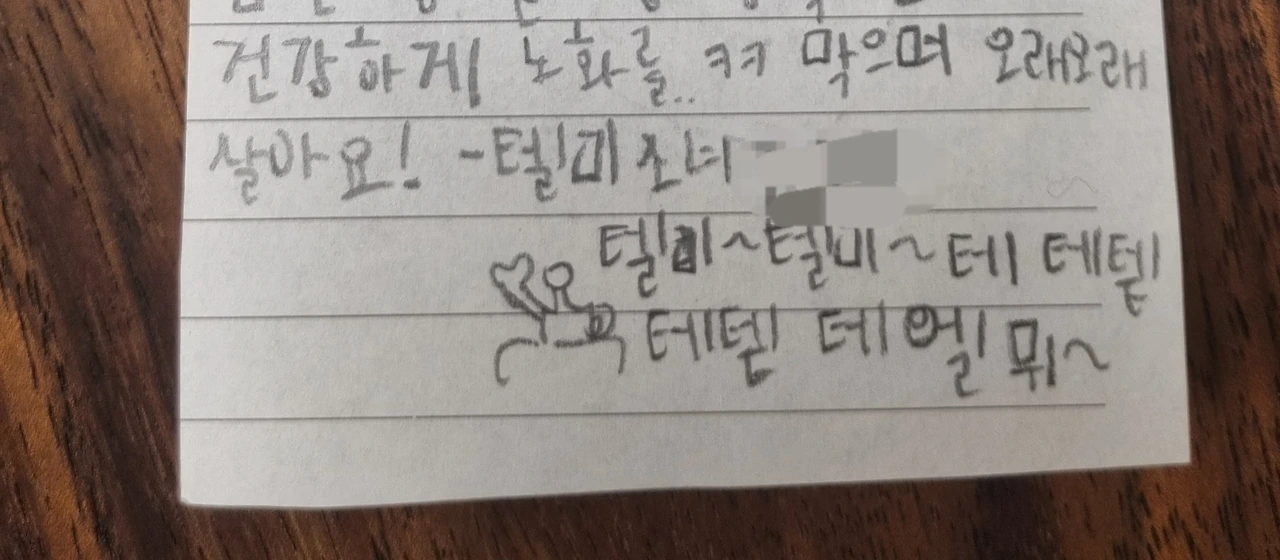 건강하게 노화를.. ㅋㅋ 막으며 오래오래
살아요! -텔미 소녀
텔미~텔미~테 테텔
테텔 테에엘 뮈~